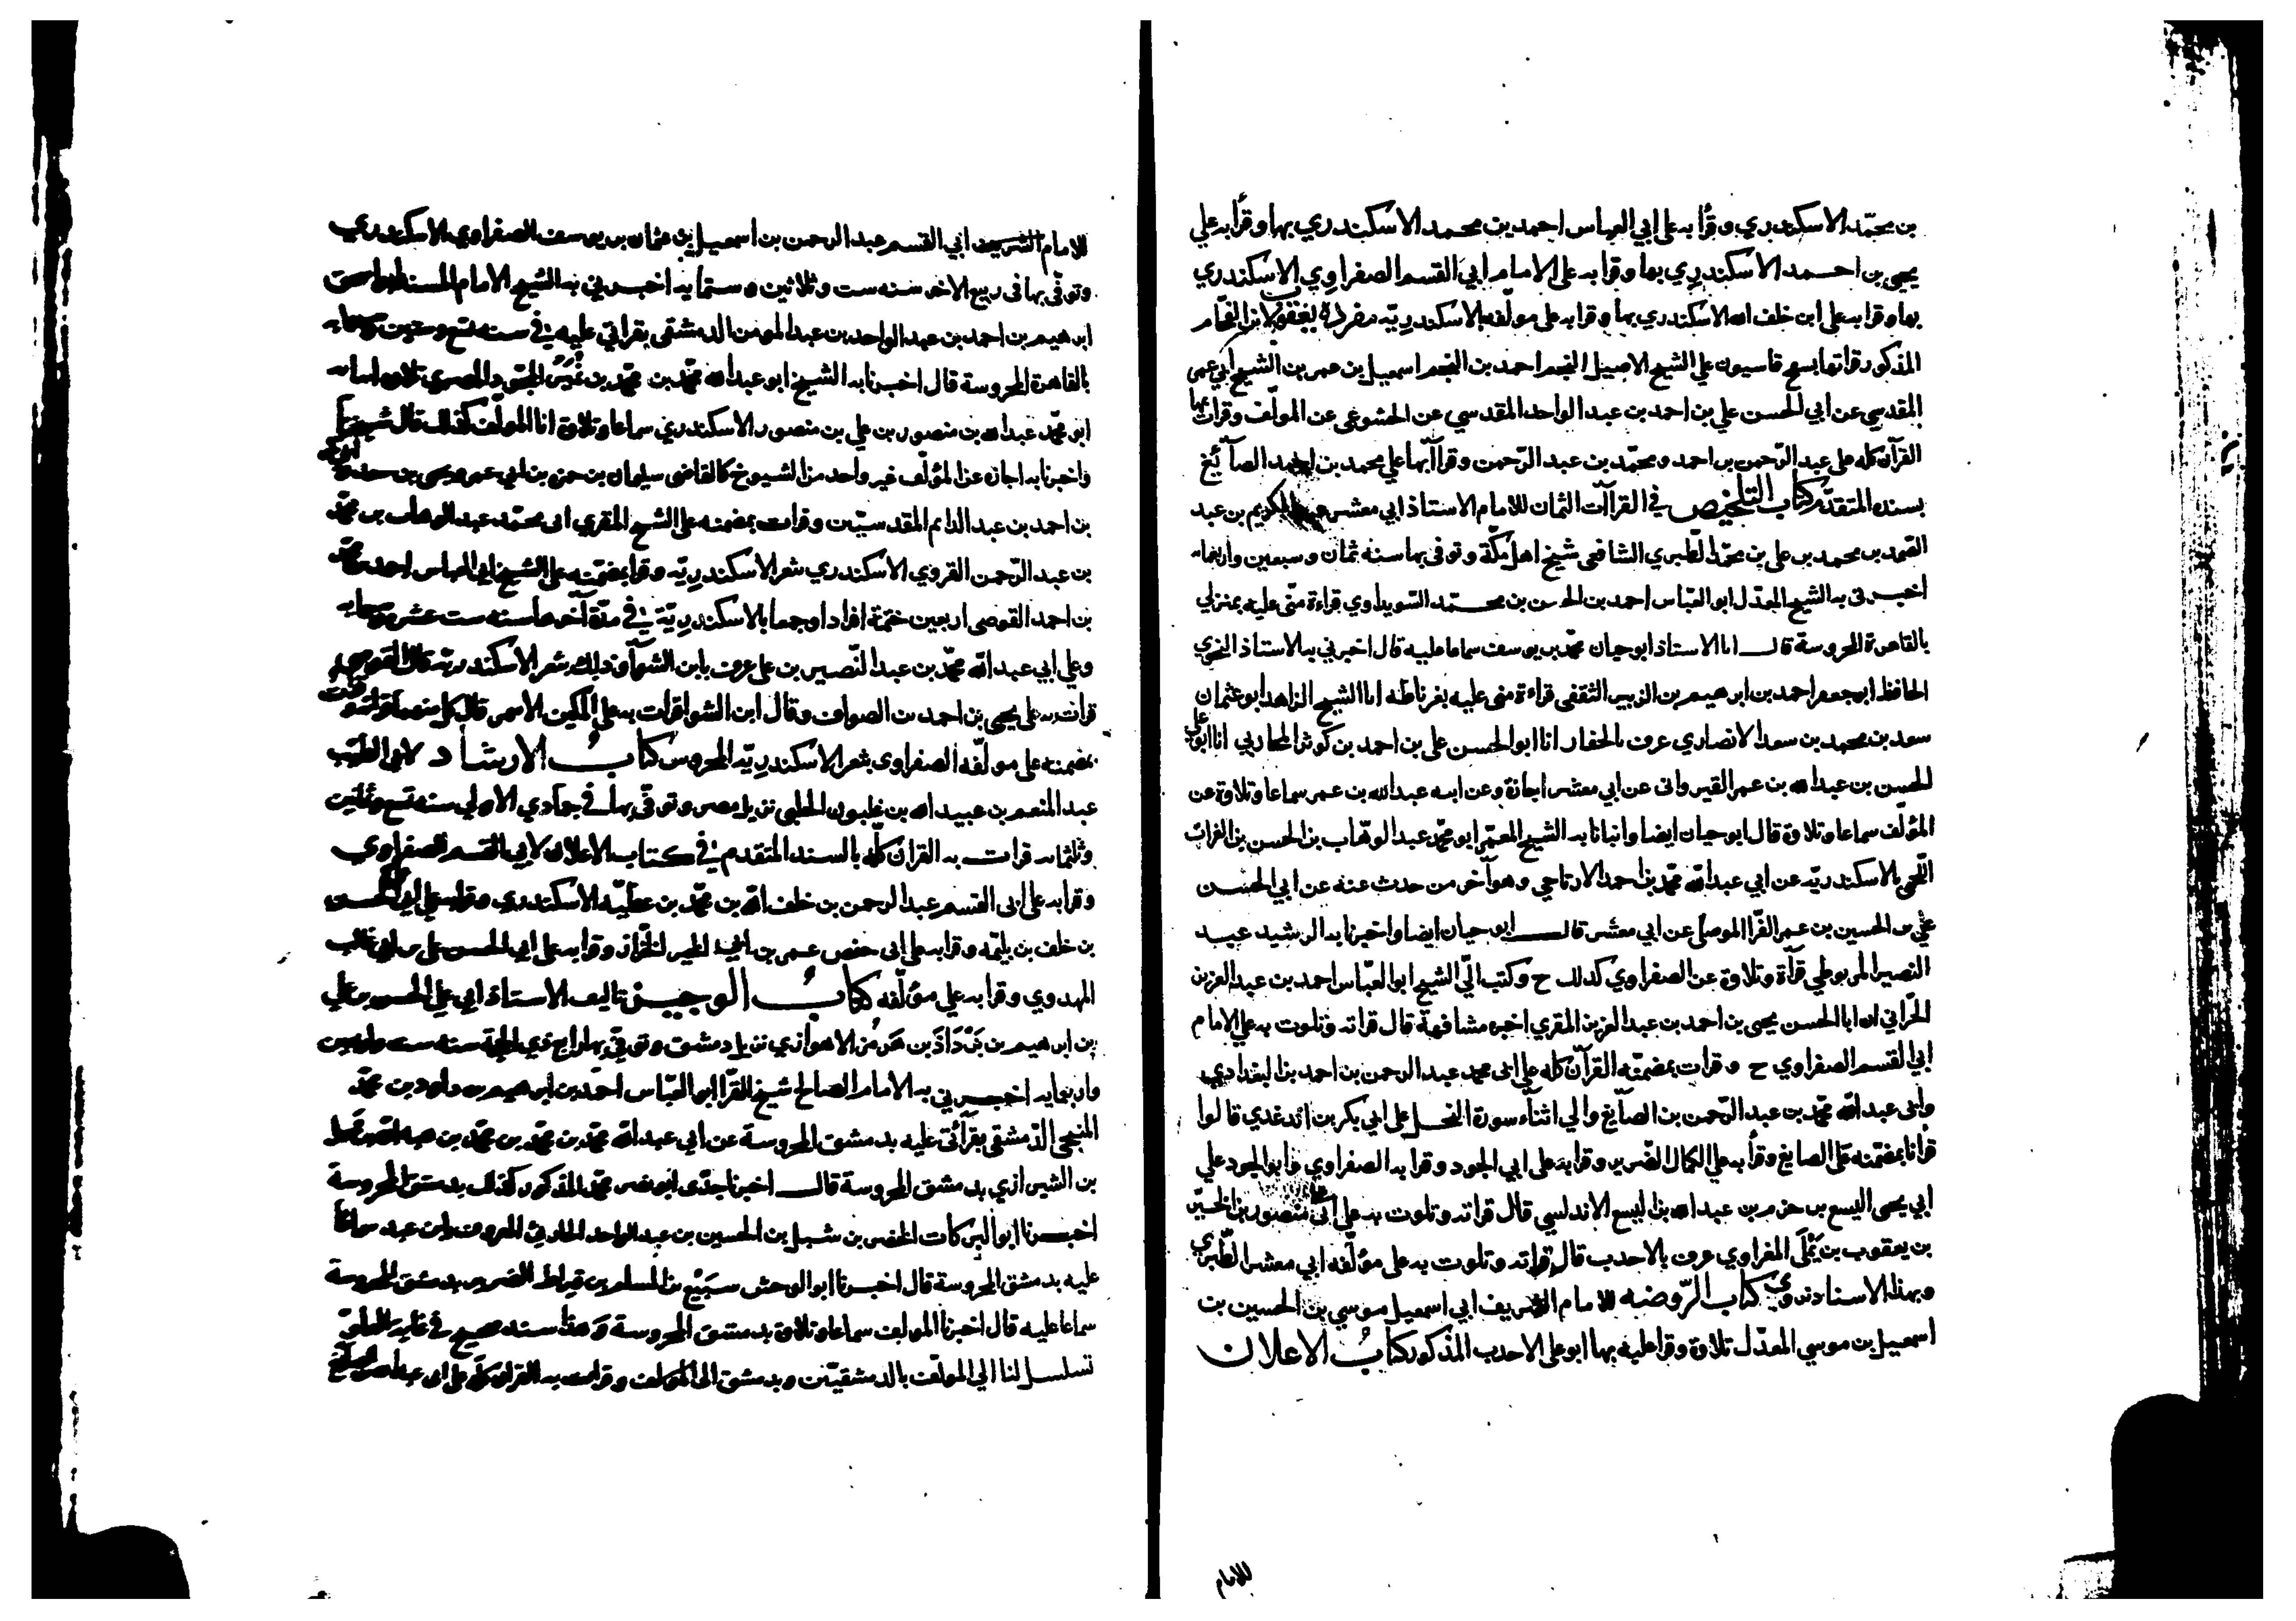 بن محمّد الاسكندري وقرأ به على ابي العباس احمد بن محمد الاسكندري بها وقرأ به علي
يحيى بن احمد الاسكندري بها وقرا به على الامام ابي القسم الصفراوي الاسكندري
بها وقرا به على ابن خلف الله الاسكندري بها وقرا به على مولفه بالاسكندريّة مفردة يعقوب لابن الفحّام
المذكور قراتها بسفح قاسيون علي الشيخ الاصيل النجم احمد بن النجم اسمعيل بن عمر بن الشيخ ابي عمر
المقدسي عن ابي الحسن علي بن احمد بن عبد الواحد المقدسي عن الخشوعي عن المولّف وقرات بها
القرآن كله على عبد الرّحمن بن احمد ومحمّد بن عبد الرّحمن وقرآ بها علي محمد بن احمد الصآئغ
بسنده المتقدّم كتاب التلخيص في القراآت الثمان للامام الاستاذ ابي معشر عبد الكريم بن عبد
الصّمد بن محمد بن على بن محمّد الطبري الشافعى شيخ اهل مكّة وتوفى بها سنة ثمان وسبعين واربعمايه
اخبرنى به الشيخ المعدّل ابو العبّاس احمد بن الحسن بن محمّد السّويداوي قراءة منّى عليه بمنزلي
بالقاهرة المحروسة قال انا الاستاذ ابو حيان محمّد بن يوسف سماعا عليه قال اخبرني به الاستاذ النحوي
الحافظ ابو جعفر احمد بن ابرهيم بن الزبير الثقفى قراءة منى عليه بغرناطه انا الشيخ الزاهد ابو عثمان
سعد بن محمد بن سعد الانصاري عرف بالحفار انا ابو الحسن على بن احمد بن كوثر المحاربي انا ابو علي
الحسن بن عبد الله بن عمر القيرواني عن ابي معشر اجازة وعن ابيه عبد الله بن عمر سماعا وتلاوة عن
المؤلّف سماعا وتلاوة قال ابو حيان ايضا وانبانا به الشيخ المعمّر ابو محمّد عبد الوهّاب بن الحسن بن الفرات
اللّخمي بالاسكندريّه عن ابي عبد الله محمّد بن احمد الارتاحي وهو آخر من حدث عنه عن ابي الحسن
علي بن الحسين بن عمر الفرّا الموصلي عن ابي معشر قال ابو حيان ايضا واخبرنا به الرشيد عبد
النصير المربوطي قرآة وتلاوة عن الصفراوي كذلك ح وكتب اليّ الشيخ ابو العبّاس احمد بن عبد العزيز
الحرّاني ان ابا الحسن يحيى بن احمد بن عبد العزيز المقري اخبره مشافهة قال قراته وتلوت به علي الامام
ابي القسم الصفراوي ح وقرات بمضمّنه القرآن كله علي ابى محمد عبد الرحمن بن احمد بن البغدادي
وابى عبد الله محمّد بن عبد الرّحمن بن الصآيغ والي اثنآء سورة النحل على ابي بكر بن ائدغدي قالوا
قرأنا بمضمّنه على الصايغ وقرأ به علي الكمال الضرير وقرا به على ابي الجود وقرا به الصفراوي وابو الجود علي
ابي يحيى اليسع بن حزم بن عبد الله بن اليسع الاندلسي قال قراته وتلوت به علي ابي علي منصور بن الخيّر
بن يعقوب بن يَمْلَى المغراوي عرف بالاحدب قال قراته وتلوت به على مؤلّفه ابي معشر الطّبري
وبهذا الاسناد نروي كتاب الرّوضه للامام الشريف ابي اسمعيل موسي بن الحسين بن
اسمعيل بن موسي المعدّل تلاوة وقرا عليه بها ابو على الاحدب المذكور كتابُ الاعلان
للامام
للامام الشريف ابي القسم عبد الرحمن بن اسمعيل بن عثمان بن يوسف الصفراوي الاسكندري
وتوفّي بها فى ربيع الاخر سنه ست وثلاثين وستمايه اخبرني به الشيخ الامام المسند ابو اسحق
ابرهيم بن احمد بن عبد الواحد بن عبد المومن الدمشقى بقراتي عليه في سنة تسع وستين وسبعمايه
بالقاهرة المحروسة قال اخبرنا به الشيخ ابو عبد الله محمّد بن محمّد بن نُمَير المجوّد المصري تلاوة انبا به
ابو محمّد عبد الله بن منصور بن علي بن منصور الاسكندري سماعا وتلاوة انا المولّف كذلك قال شيخنا
واخبرنا به اجازة عن المؤلّف غير واحد من الشيوخ كالقاضى سليمان بن حمزة بن ابي عمر ويحيى بن سعد وابي بكر
بن احمد بن عبد الدائم المقدسيّين وقرات بمضمنه علي الشيخ المقري ابى محمّد عبد الوهاب بن محمّد
بن عبد الرّحمن القروي الاسكندري بثغر الاسكندريّه وقرا بمضمّنه علي الشيخ ابي العباس احمد بن محمّد
بن احمد القوصى اربعين ختمة افرادا وجمعا بالاسكندريّة في مدّة آخرها سنه ست عشرة وسبعمايه
وعلي ابي عبد الله محمّد بن عبد النّصير بن على عرف بابن الشوّآ وذلك بثغر الاسكندريّه قال القوصي
قرات به على يحيى بن احمد بن الصواف وقال ابن الشوا قرات به علي المكين الاسمر قال كل منهما قرات
بمضمنه على مولّفه الصفراوى بثغر الاسكندريّه المحروس كتابُ الارشاد لابى الطيّب
عبد المنعم بن عبيد الله بن غلبون الحلبي نزيل مصر وتوفّى بها في جمادي الاولي سنه تسع وثمنين
وثلثمايه قرات به القران كلّه بالسند المتقدم في كتاب الاعلان لابي القسم الصفراوي
وقرا به على ابى القسم عبد الرحمن بن خلف الله بن محمّد بن عطيّه الاسكندري وقرا به على ابي علي الحسن
بن خلف بن بليمّه وقرا به على ابى حفص عمر بن ابي الخير الخرّاز وقرا به على ابي الحسن على بن ابي غالب
المهدوي وقرا به علي مؤلّفه كتابُ الوجيز تاليف الاستاذ ابي علي الحسن بن علي
بن ابرهيم بن يَزْدَاذَ بن هُرمُز الاهوازي نزيل دمشق وتوفّي بها رابع ذي الحجة سنه ست واربعين
واربعمايه اخبرني به الامام الصالح شيخ القرّا ابو العبّاس احمد بن ابرهيم بن داود بن محمّد
المنبجي الدّمشقى بقرآئتى عليه بدمشق المحروسة عن ابي عبد الله محمّد بن محمّد بن محمّد بن هبة الله بن مميل
بن الشيرازي بدمشق المحروسة قال اخبرنا جدّى ابو نصر محمّد المذكور كذلك بدمشق المحروسة
اخبرنا ابو البركات الخضر بن شبل بن الحسين بن عبد الواحد الحارثي المعروف بابن عبد سماعًا
عليه بدمشق المحروسة قال اخبرنا ابو الوحش سُبَيْع بن المسلم بن قيراط الضرير بدمشق المحروسة
سماعا عليه قال اخبرنا المولف سماعا وتلاوة بدمشق المحروسة وهذا سند صحيح في غاية العلوّ
تسلسل لنا الي المولّف بالدمشقيّين وبدمشق الى المولف وقرات به القران كلّه على ابى عبد الله بن الصايغ